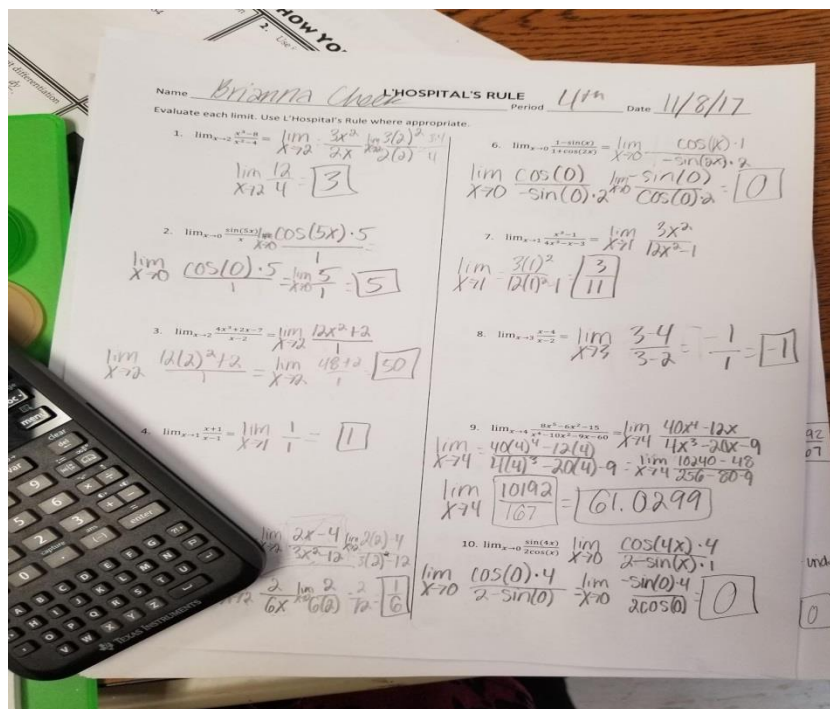 HOW YO
2. Use
differentiation
L'HOSPITAL'S RULE
Name Brianna Cheek Period 4th Date 11/8/17
Evaluate each limit. Use L'Hospital's Rule where appropriate.
1. lim x→2 (x³-8)/(x²-4) = lim x→2 3x²/2x lim x→2 3(2)²/2(2) 3·4/4
lim x→2 12/4 = 3
2. lim x→0 sin(5x)/x = lim x→0 cos(5x)·5/1 =
lim x→0 cos(0)·5/1 = lim x→0 5/1 = 5
3. lim x→2 (4x³+2x-7)/(x-2) = lim x→2 (12x²+2)/1
lim x→2 (12(2)²+2)/1 = lim x→2 (48+2)/1 50
4. lim x→1 (x+1)/(x-1) = lim x→1 1/1 = 1
lim x→2 (2x-4)/(3x²-12) lim x→2 (2(2)-4)/(3(2)²-12)
2/6x lim 2/6(2) = 2/12 = 1/6
6. lim x→0 (1-sin(x))/(1+cos(2x)) = lim x→0 cos(x)·1/-sin(2x)·2
lim x→0 cos(0)/-sin(0)·2 lim x→0 -sin(0)/cos(0)·2 = 0
7. lim x→1 (x³-1)/(4x³-x-3) = lim x→1 3x²/(12x²-1)
lim x→1 3(1)²/(12(1)²-1) = 3/11
8. lim x→3 (x-4)/(x-2) = lim x→3 (3-4)/(3-2) = -1/1 = -1
9. lim x→4 (8x⁵-6x²-15)/(x⁴-10x²-9x-60) = lim x→4 (40x⁴-12x)/(4x³-20x-9)
lim x→4 = (40(4)⁴-12(4))/(4(4)³-20(4)-9) = lim x→4 (10240-48)/(256-80-9)
lim x→4 10192/167 = 61.0299
10. lim x→0 sin(4x)/2cos(x) lim x→0 cos(4x)·4/2-sin(x)·1
lim x→0 cos(0)·4/2-sin(0) lim x→0 -sin(0)·4/2cos(0) = 0
92
07
und
0
clear
menu
del
var
9
5
6
1
2
3
enter
capture
0
.
(-)
A B C D E F G
H I J K L M N
O P Q R S T U
V W X Y Z
TEXAS INSTRUMENTS